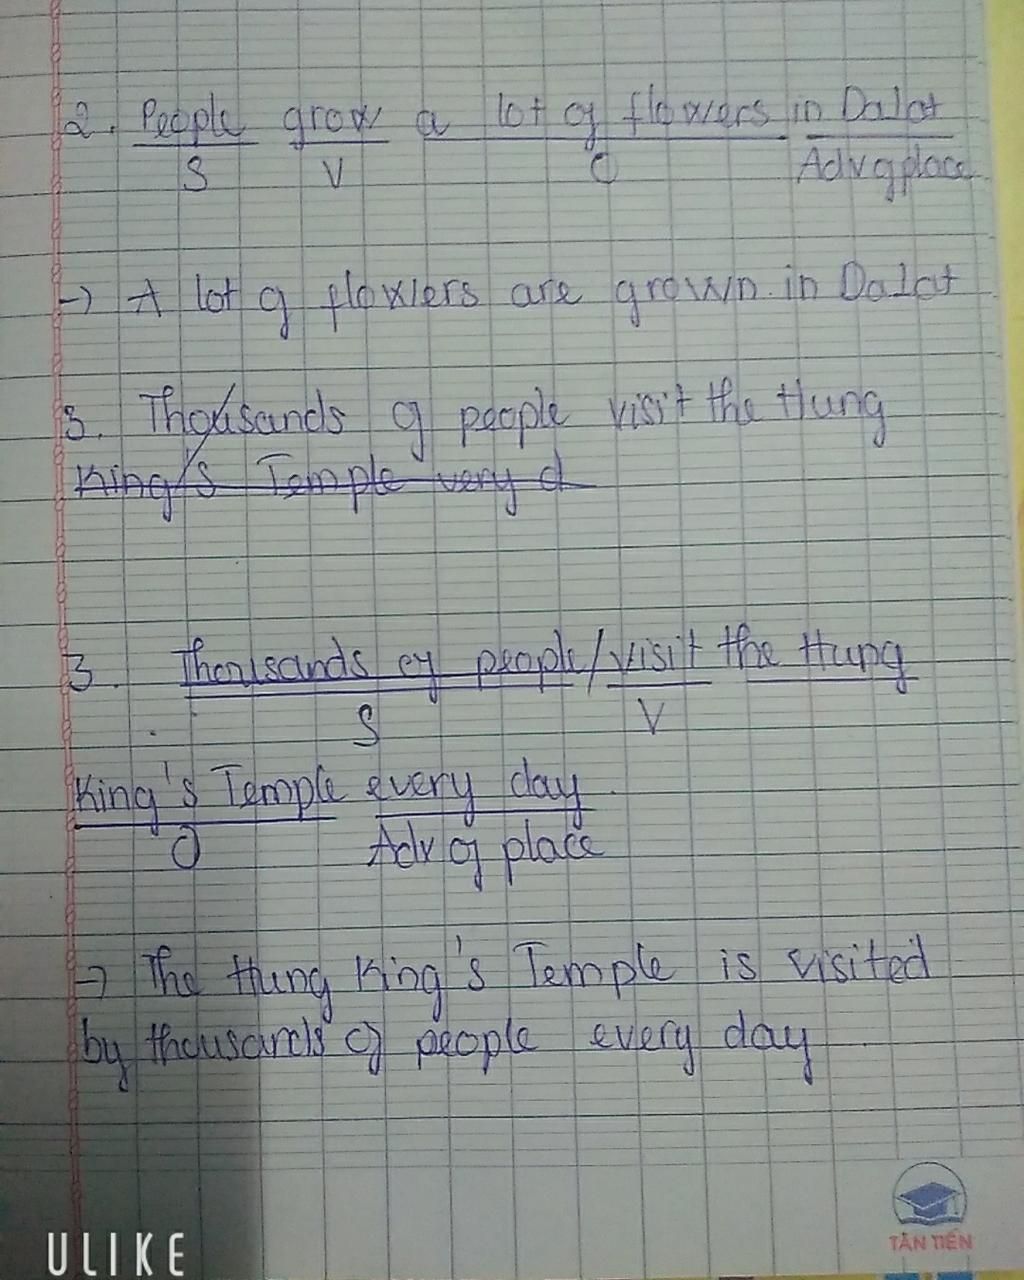 2. People grow a lot of flowers in Dalat
S V O Adv of place
→ A lot of flowers are grown in Dalat
3. Thousands of people visit the Hung
King's Temple very d
3. Thousands of people / visit the Hung
S V
King's Temple every day
O Adv of place
→ The Hung King's Temple is visited
by thousands of people every day
TÂN TIẾN
ULIKE